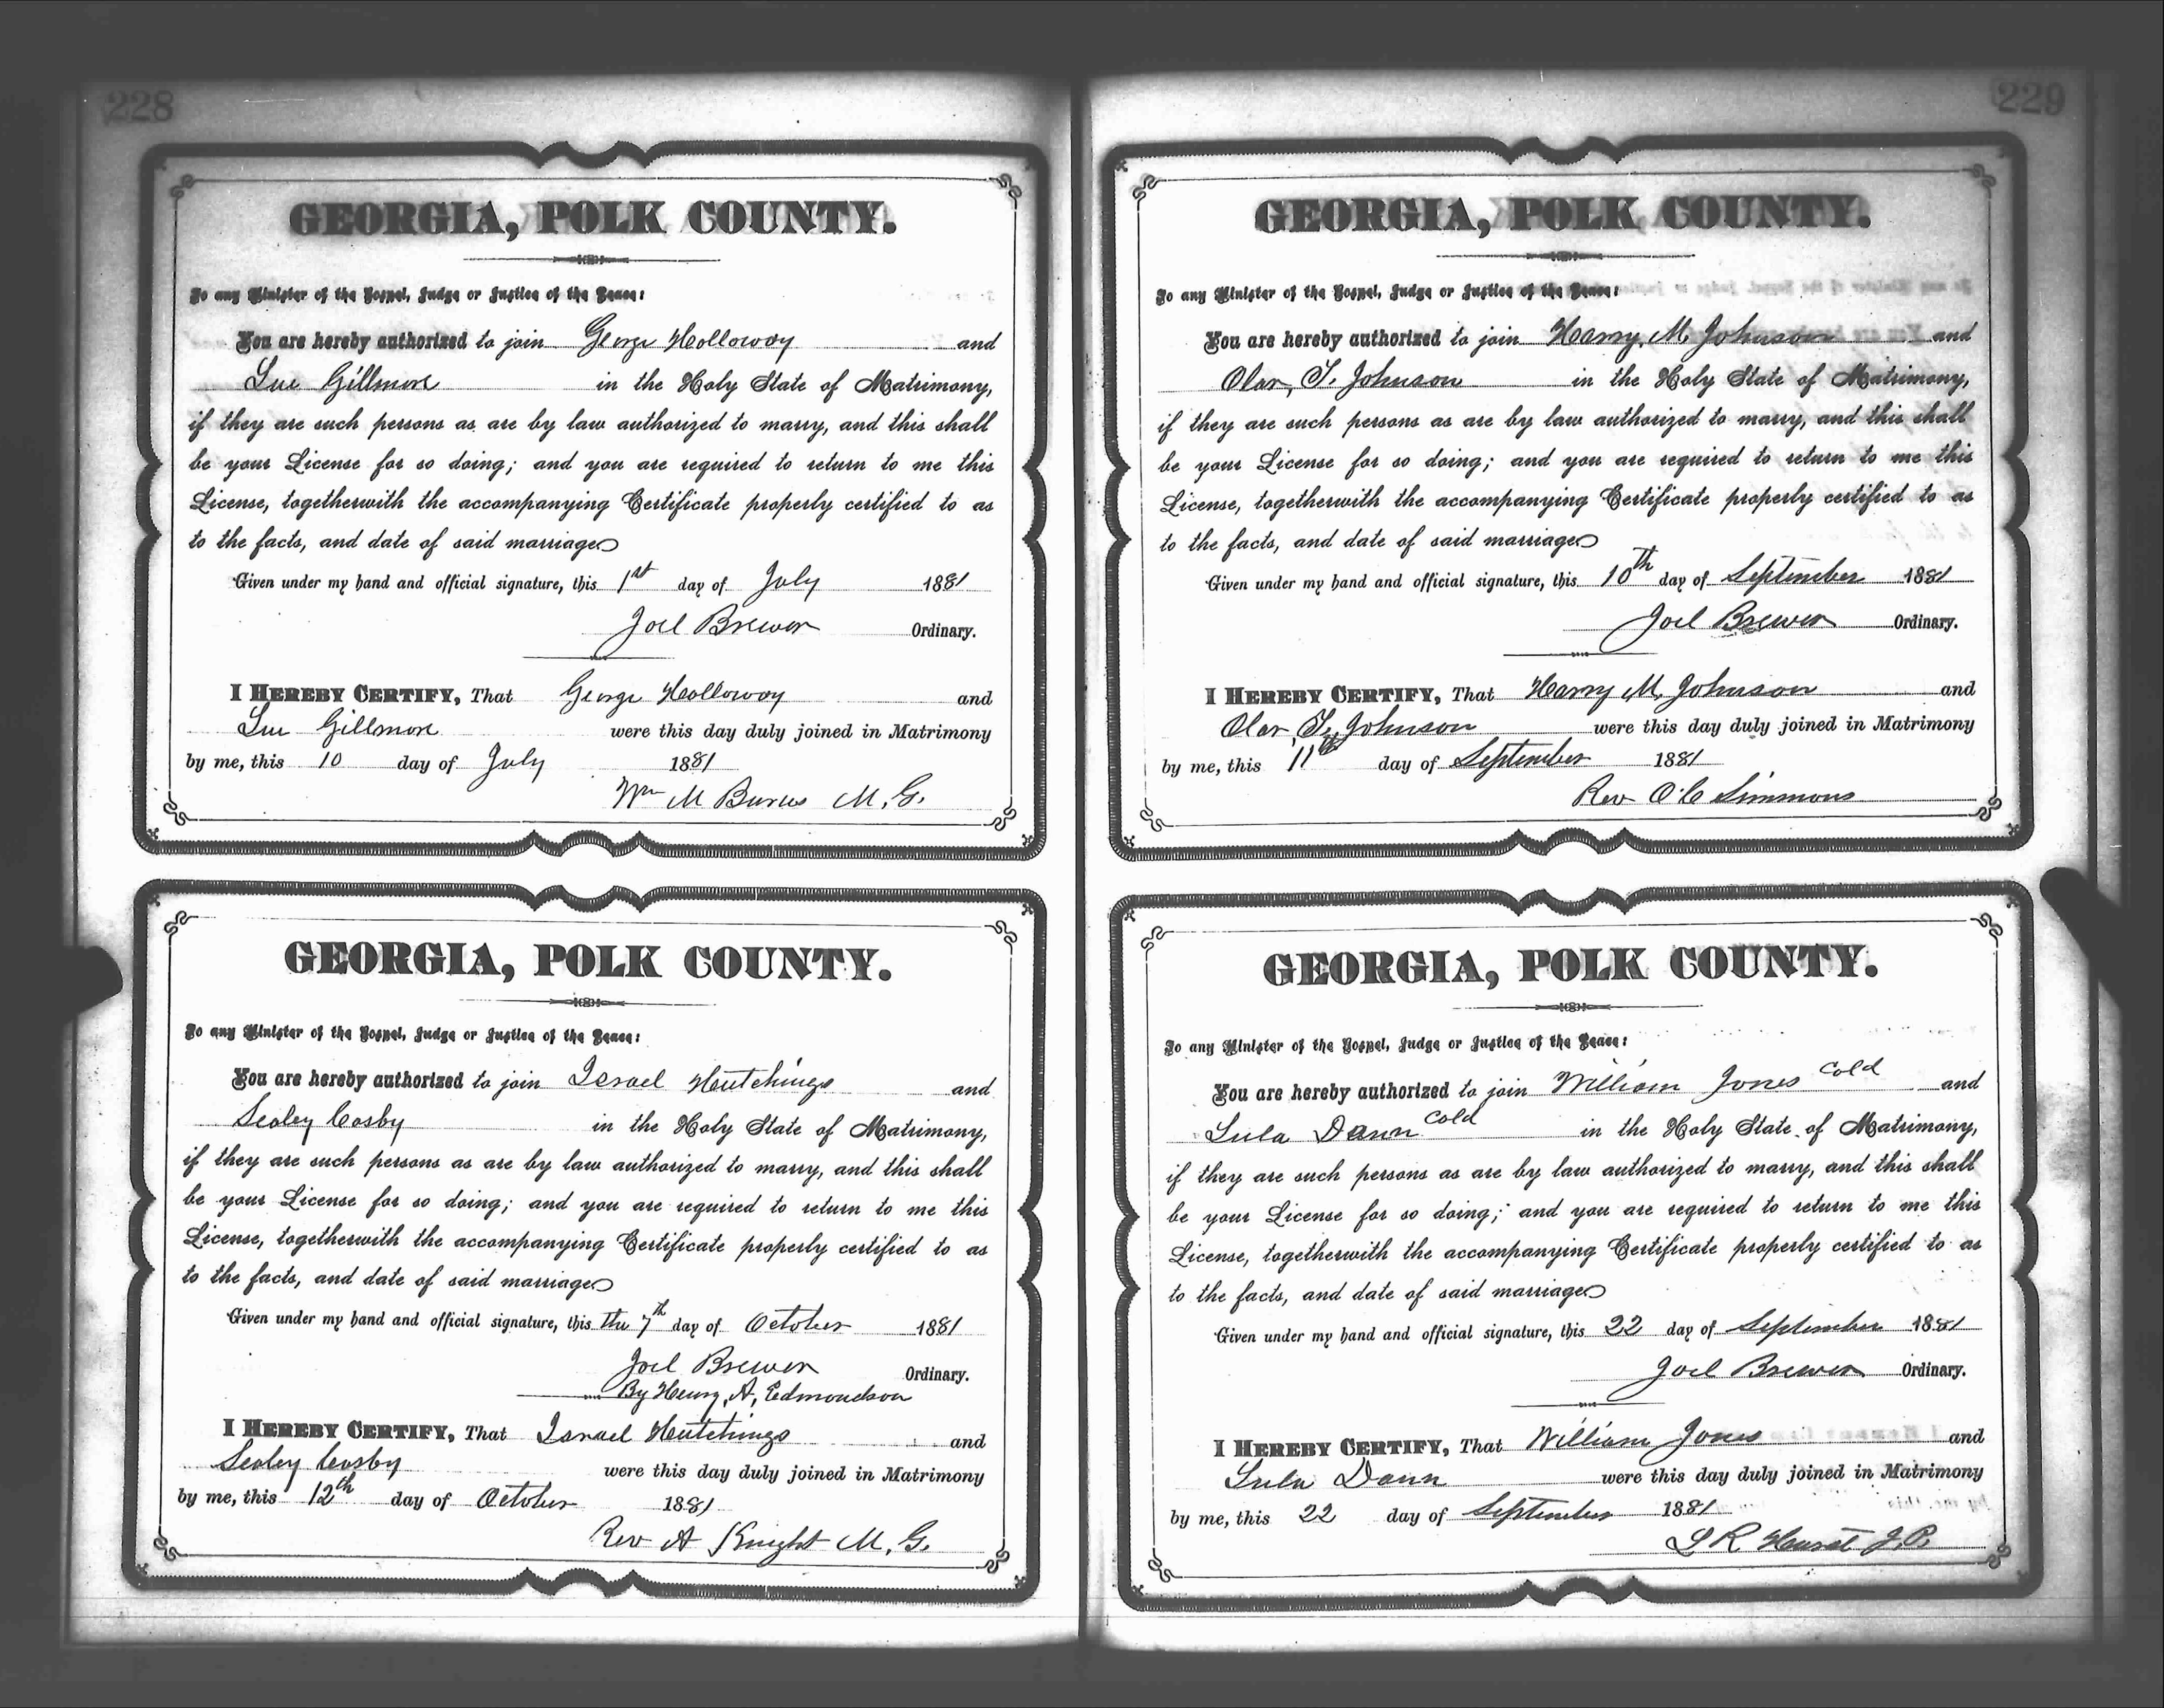 228
GEORGIA, POLK COUNTY.
To any Minister of the Gospel, Judge or Justice of the Peace:
You are hereby authorized to join George Holloway and
Sue Gillmore in the Holy State of Matrimony,
if they are such persons as are by law authorized to marry, and this shall
be your License for so doing; and you are required to return to me this
License, togetherwith the accompanying Certificate properly certified to as
to the facts, and date of said marriage
Given under my hand and official signature, this 1st day of July 1881
Joel Brewer Ordinary.
I HEREBY CERTIFY, That George Holloway and
Sue Gillmore were this day duly joined in Matrimony
by me, this 10 day of July 1881
Wm M Burns M. G.
GEORGIA, POLK COUNTY.
To any Minister of the Gospel, Judge or Justice of the Peace:
You are hereby authorized to join Israel Hutchings and
Sealey Cosby in the Holy State of Matrimony,
if they are such persons as are by law authorized to marry, and this shall
be your License for so doing; and you are required to return to me this
License, togetherwith the accompanying Certificate properly certified to as
to the facts, and date of said marriage
Given under my hand and official signature, this the 7th day of October 1881
Joel Brewer Ordinary.
By Henry, A, Edmondson
I HEREBY CERTIFY, That Israel Hutchings and
Sealey Cosby were this day duly joined in Matrimony
by me, this 12th day of October 1881
Rev A Knight M, G.
229
GEORGIA, POLK COUNTY.
To any Minister of the Gospel, Judge or Justice of the Peace:
You are hereby authorized to join Harry, M, Johnson and
Olar, T. Johnson in the Holy State of Matrimony,
if they are such persons as are by law authorized to marry, and this shall
be your License for so doing; and you are required to return to me this
License, togetherwith the accompanying Certificate properly certified to as
to the facts, and date of said marriage
Given under my hand and official signature, this 10th day of September 1881
Joel Brewer Ordinary.
I HEREBY CERTIFY, That Harry, M, Johnson and
Olar, T., Johnson were this day duly joined in Matrimony
by me, this 11th day of September 1881
Rev O. C Simmons
GEORGIA, POLK COUNTY.
To any Minister of the Gospel, Judge or Justice of the Peace:
You are hereby authorized to join William Jones Cold and
Lula Dann Cold in the Holy State of Matrimony,
if they are such persons as are by law authorized to marry, and this shall
be your License for so doing; and you are required to return to me this
License, togetherwith the accompanying Certificate properly certified to as
to the facts, and date of said marriage
Given under my hand and official signature, this 22 day of September 1881
Joel Brewer Ordinary.
I HEREBY CERTIFY, That William Jones and
Lula Dann were this day duly joined in Matrimony
by me, this 22 day of September 1881
L R Hurst J. P.